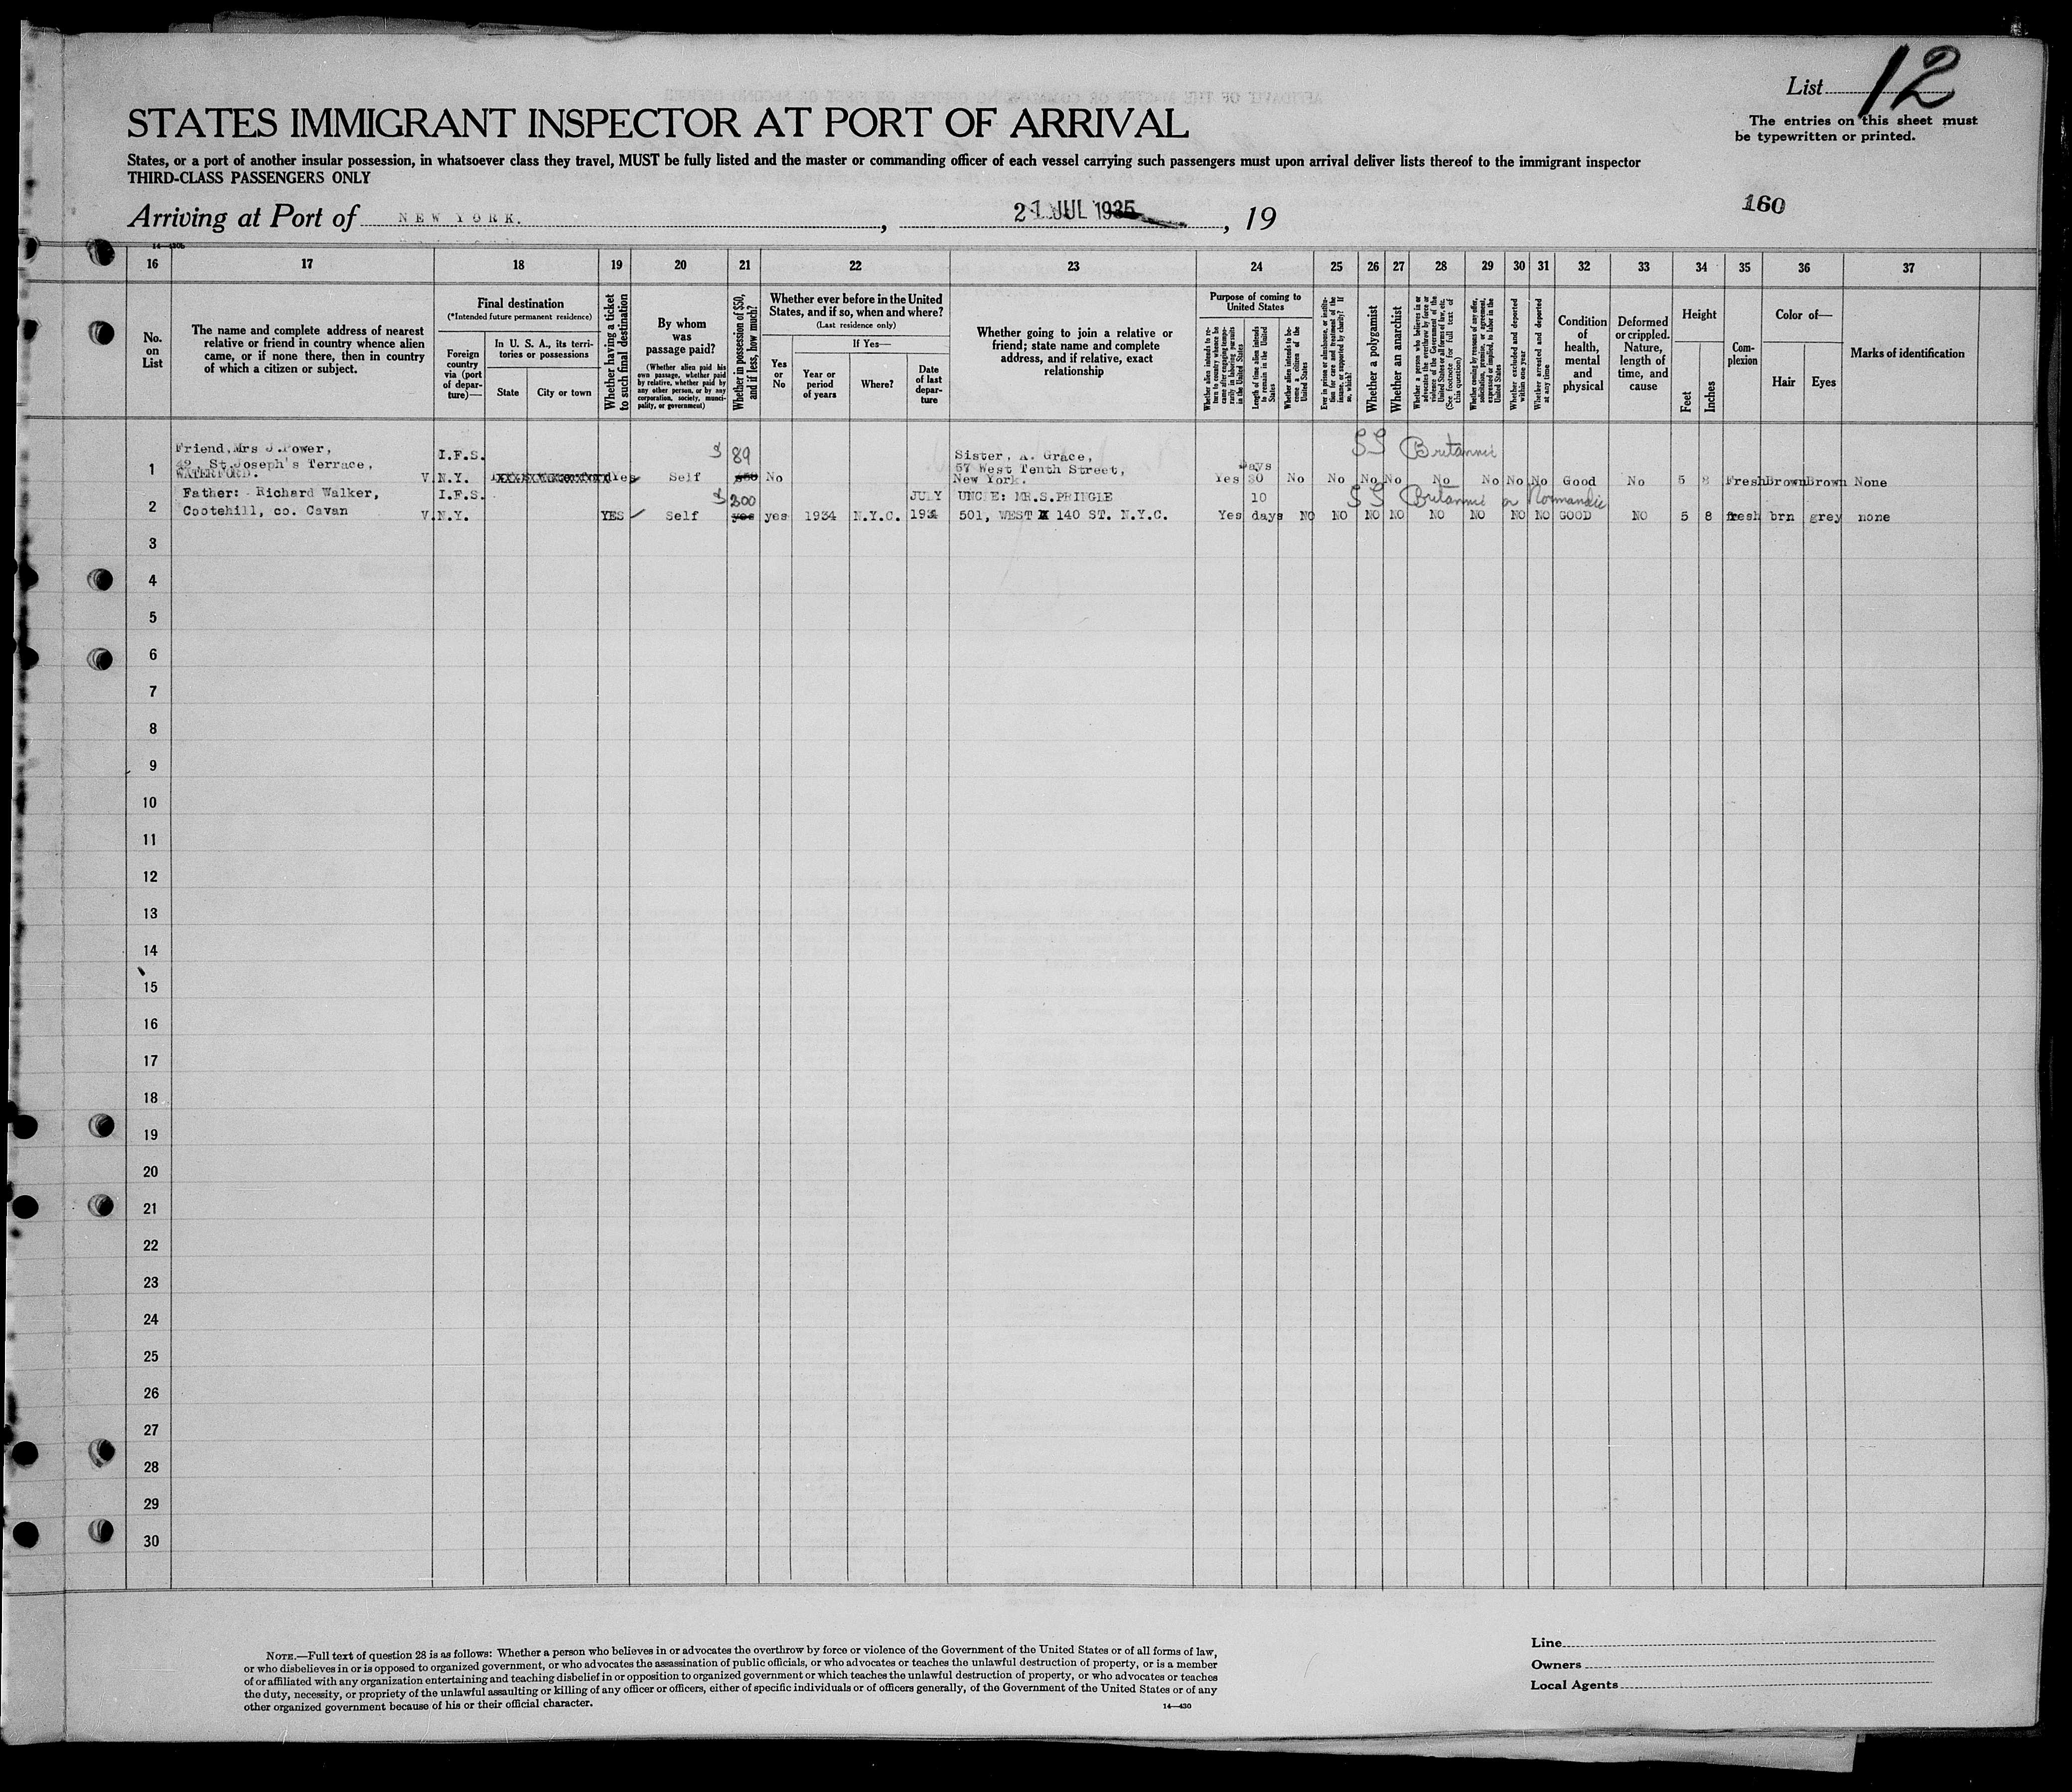 List 12
The entries on this sheet must
be typewritten or printed.
STATES IMMIGRANT INSPECTOR AT PORT OF ARRIVAL
States, or a port of another insular possession, in whatsoever class they travel, MUST be fully listed and the master or commanding officer of each vessel carrying such passengers must upon arrival deliver lists thereof to the immigrant inspector
THIRD-CLASS PASSENGERS ONLY
160
Arriving at Port of NEW YORK. , 21 JUL 1935 , 19
16 17 18 19 20 21 22 23 24 25 26 27 28 29 30 31 32 33 34 35 36 37
No.
on
List
The name and complete address of nearest
relative or friend in country whence alien
came, or if none there, then in country
of which a citizen or subject.
Final destination
(*Intended future permanent residence)
Foreign
country
via (port
of depar-
ture)—
In U. S. A., its terri-
tories or possessions
State
City or town
Whether having a ticket
to such final destination
By whom
was
passage paid?
(Whether alien paid his
own passage, whether paid
by relative, whether paid by
any other person, or by any
corporation, society, munici-
pality, or government)
Whether in possession of $50,
and if less, how much?
Whether ever before in the United
States, and if so, when and where?
(Last residence only)
Yes
or
No
If Yes—
Year or
period
of years
Where?
Date
of last
depar-
ture
Whether going to join a relative or
friend; state name and complete
address, and if relative, exact
relationship
Purpose of coming to
United States
Whether alien intends to re-
turn to country whence he
came after engaging tempo-
rarily in laboring pursuits
in the United States
Length of time alien intends
to remain in the United
States
Whether alien intends to be-
come a citizen of the
United States
Ever in prison or almshouse, or institu-
tion for care and treatment of the
insane, or supported by charity? If
so, which?
Whether a polygamist
Whether an anarchist
Whether a person who believes in or
advocates the overthrow by force or
violence of the Government of the
United States or all forms of law, etc.
(See footnote for full text of
this question)
Whether coming by reason of any offer,
solicitation, promise, or agreement,
expressed or implied, to labor in the
United States
Whether excluded and deported
within one year
Whether arrested and deported
at any time
Condition
of
health,
mental
and
physical
Deformed
or crippled.
Nature,
length of
time, and
cause
Height
Feet
Inches
Com-
plexion
Color of—
Hair
Eyes
Marks of identification
Friend, Mrs J. Power,
42, St. Joseph's Terrace,
WATERFORD.
1 I.F.S. V. N.Y. Yes Self $ 89 $50 No
Sister, A. Grace,
57 West Tenth Street,
New York.
Yes Days 30 No No No No No No No No Good No 5 8 Fresh Brown Brown None
SS Britannic
Father: Richard Walker,
Cootehill, co. Cavan
2 I.F.S. V. N.Y. YES Self $ 200 yes yes 1934 N.Y.C. JULY 1934
UNCLE: MR.S.PRINGLE
501, WEST 140 ST. N.Y.C.
Yes 10 days NO NO NO NO NO NO NO NO GOOD NO 5 8 fresh brn grey none
SS Britannic or Normandie
3
4
5
6
7
8
9
10
11
12
13
14
15
16
17
18
19
20
21
22
23
24
25
26
27
28
29
30
NOTE.—Full text of question 28 is as follows: Whether a person who believes in or advocates the overthrow by force or violence of the Government of the United States or of all forms of law,
or who disbelieves in or is opposed to organized government, or who advocates the assassination of public officials, or who advocates or teaches the unlawful destruction of property, or is a member
of or affiliated with any organization entertaining and teaching disbelief in or opposition to organized government or which teaches the unlawful destruction of property, or who advocates or teaches
the duty, necessity, or propriety of the unlawful assaulting or killing of any officer or officers, either of specific individuals or of officers generally, of the Government of the United States or of any
other organized government because of his or their official character.
14—430
Line
Owners
Local Agents